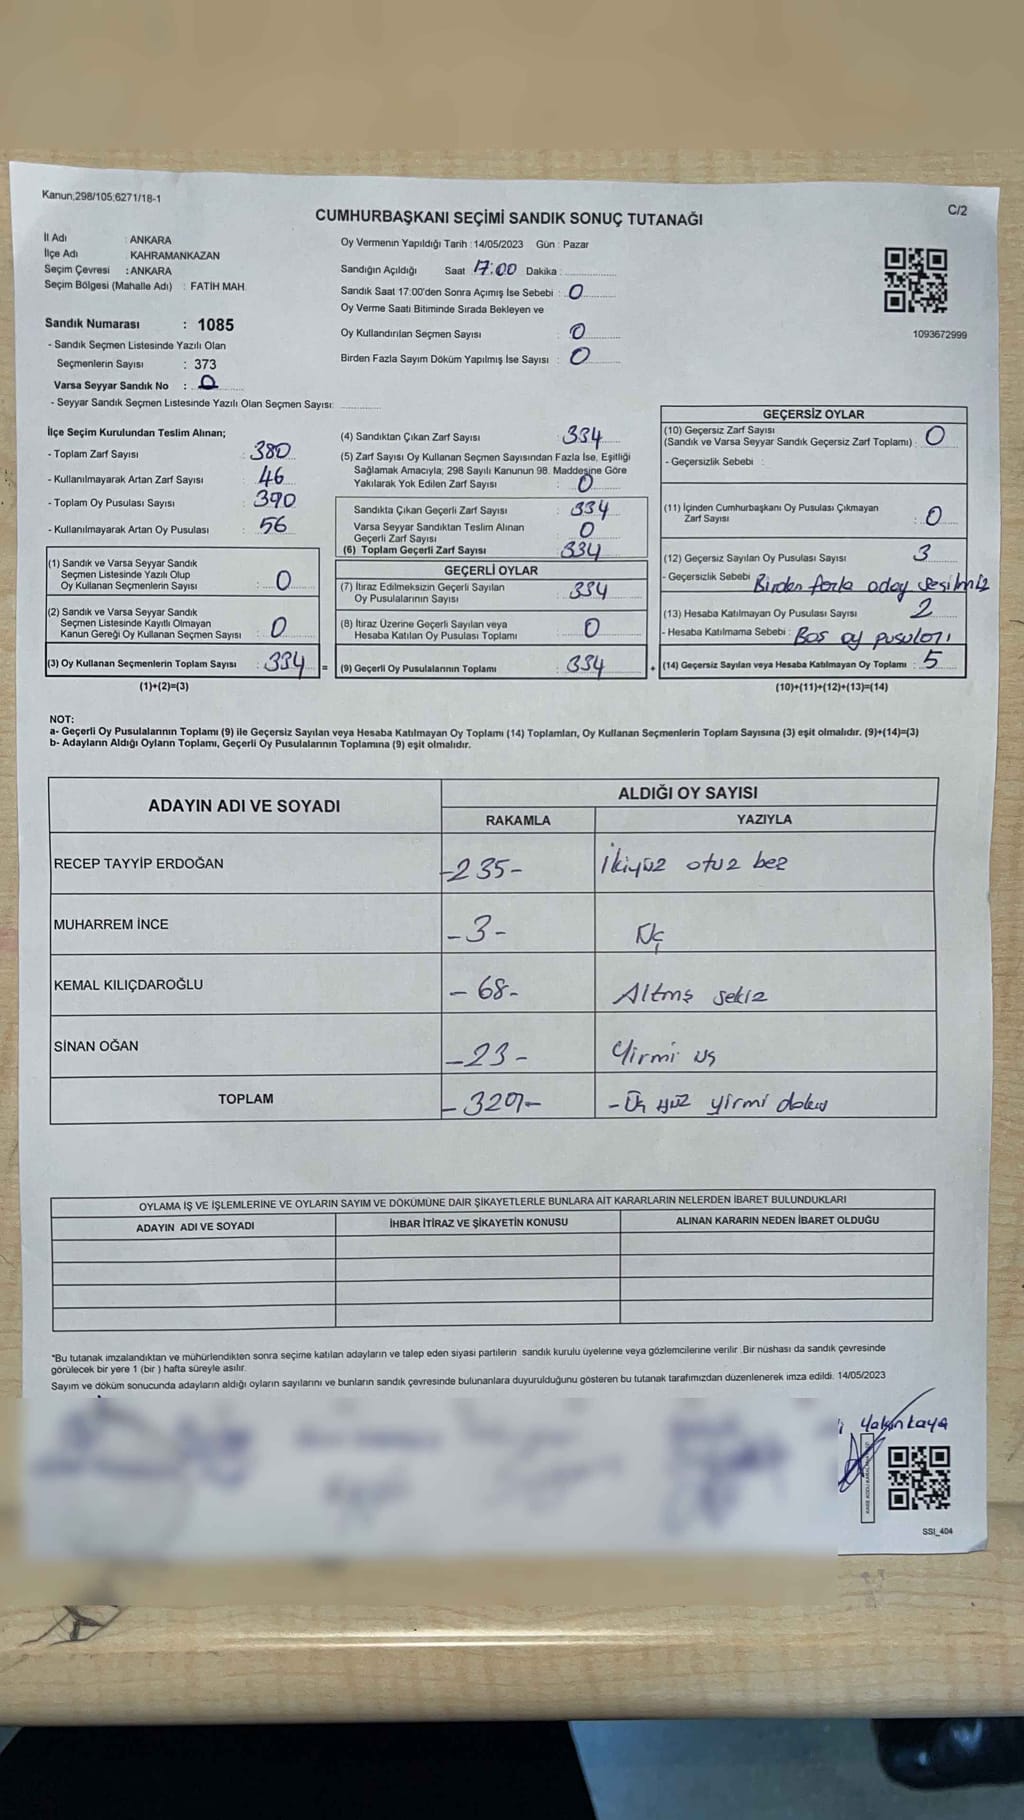 Kanun;298/105;6271/18-1
C/2
CUMHURBAŞKANI SEÇİMİ SANDIK SONUÇ TUTANAĞI
İl Adı : ANKARA
İlçe Adı : KAHRAMANKAZAN
Seçim Çevresi : ANKARA
Seçim Bölgesi (Mahalle Adı) : FATİH MAH.
Sandık Numarası : 1085
- Sandık Seçmen Listesinde Yazılı Olan
Seçmenlerin Sayısı : 373
Varsa Seyyar Sandık No : 0
- Seyyar Sandık Seçmen Listesinde Yazılı Olan Seçmen Sayısı:
Oy Vermenin Yapıldığı Tarih : 14/05/2023 Gün : Pazar
Sandığın Açıldığı Saat 17:00 Dakika :
Sandık Saat 17:00'den Sonra Açımış İse Sebebi : 0
Oy Verme Saati Bitiminde Sırada Bekleyen ve
Oy Kullandırılan Seçmen Sayısı : 0
Birden Fazla Sayım Döküm Yapılmış İse Sayısı : 0
1093672999
İlçe Seçim Kurulundan Teslim Alınan;
- Toplam Zarf Sayısı : 380
- Kullanılmayarak Artan Zarf Sayısı : 46
- Toplam Oy Pusulası Sayısı : 390
- Kullanılmayarak Artan Oy Pusulası : 56
(1) Sandık ve Varsa Seyyar Sandık
Seçmen Listesinde Yazılı Olup
Oy Kullanan Seçmenlerin Sayısı : 0
(2) Sandık ve Varsa Seyyar Sandık
Seçmen Listesinde Kayıtlı Olmayan
Kanun Gereği Oy Kullanan Seçmen Sayısı : 0
(3) Oy Kullanan Seçmenlerin Toplam Sayısı : 334 =
(1)+(2)=(3)
(4) Sandıktan Çıkan Zarf Sayısı : 334
(5) Zarf Sayısı Oy Kullanan Seçmen Sayısından Fazla İse, Eşitliği
Sağlamak Amacıyla; 298 Sayılı Kanunun 98. Maddesine Göre
Yakılarak Yok Edilen Zarf Sayısı : 0
Sandıkta Çıkan Geçerli Zarf Sayısı : 334
Varsa Seyyar Sandıktan Teslim Alınan
Geçerli Zarf Sayısı : 0
(6) Toplam Geçerli Zarf Sayısı : 334
GEÇERLİ OYLAR
(7) İtiraz Edilmeksizin Geçerli Sayılan
Oy Pusulalarının Sayısı : 334
(8) İtiraz Üzerine Geçerli Sayılan veya
Hesaba Katılan Oy Pusulası Toplamı : 0
(9) Geçerli Oy Pusulalarının Toplamı : 334 +
GEÇERSİZ OYLAR
(10) Geçersiz Zarf Sayısı
(Sandık ve Varsa Seyyar Sandık Geçersiz Zarf Toplamı) : 0
- Geçersizlik Sebebi :
(11) İçinden Cumhurbaşkanı Oy Pusulası Çıkmayan
Zarf Sayısı : 0
(12) Geçersiz Sayılan Oy Pusulası Sayısı : 3
- Geçersizlik Sebebi : Birden fazla aday seçilmiş
(13) Hesaba Katılmayan Oy Pusulası Sayısı : 2
- Hesaba Katılmama Sebebi : Bos oy pusulası
(14) Geçersiz Sayılan veya Hesaba Katılmayan Oy Toplamı : 5
(10)+(11)+(12)+(13)=(14)
NOT:
a- Geçerli Oy Pusulalarının Toplamı (9) ile Geçersiz Sayılan veya Hesaba Katılmayan Oy Toplamı (14) Toplamları, Oy Kullanan Seçmenlerin Toplam Sayısına (3) eşit olmalıdır. (9)+(14)=(3)
b- Adayların Aldığı Oyların Toplamı, Geçerli Oy Pusulalarının Toplamına (9) eşit olmalıdır.
ADAYIN ADI VE SOYADI
ALDIĞI OY SAYISI
RAKAMLA YAZIYLA
RECEP TAYYİP ERDOĞAN -235- İkiyüz otuz beş
MUHARREM İNCE -3- Üç
KEMAL KILIÇDAROĞLU -68- Altmş sekiz
SİNAN OĞAN -23- Yirmi üş
TOPLAM -329- -Üç yüz yirmi dokuz
OYLAMA İŞ VE İŞLEMLERİNE VE OYLARIN SAYIM VE DÖKÜMÜNE DAİR ŞİKAYETLERLE BUNLARA AİT KARARLARIN NELERDEN İBARET BULUNDUKLARI
ADAYIN ADI VE SOYADI İHBAR İTİRAZ VE ŞİKAYETİN KONUSU ALINAN KARARIN NEDEN İBARET OLDUĞU
*Bu tutanak imzalandıktan ve mühürlendikten sonra seçime katılan adayların ve talep eden siyasi partilerin sandık kurulu üyelerine veya gözlemcilerine verilir. Bir nüshası da sandık çevresinde
görülecek bir yere 1 (bir ) hafta süreyle asılır.
Sayım ve döküm sonucunda adayların aldığı oyların sayılarını ve bunların sandık çevresinde bulunanlara duyurulduğunu gösteren bu tutanak tarafımızdan düzenlenerek imza edildi. 14/05/2023
Yalçınkaya
SSI_404